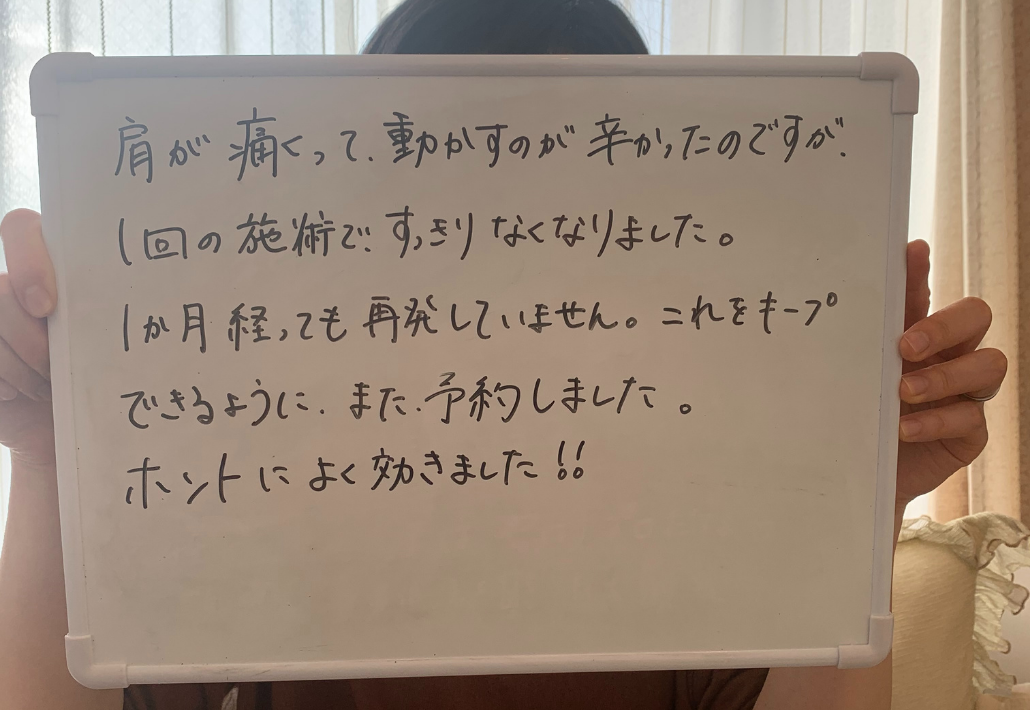 肩が痛くって、動かすのが辛かったのですが、
1回の施術で、すっきりなくなりました。
1か月経っても再発していません。これをキープ
できるように、また、予約しました。
ホントによく効きました!!